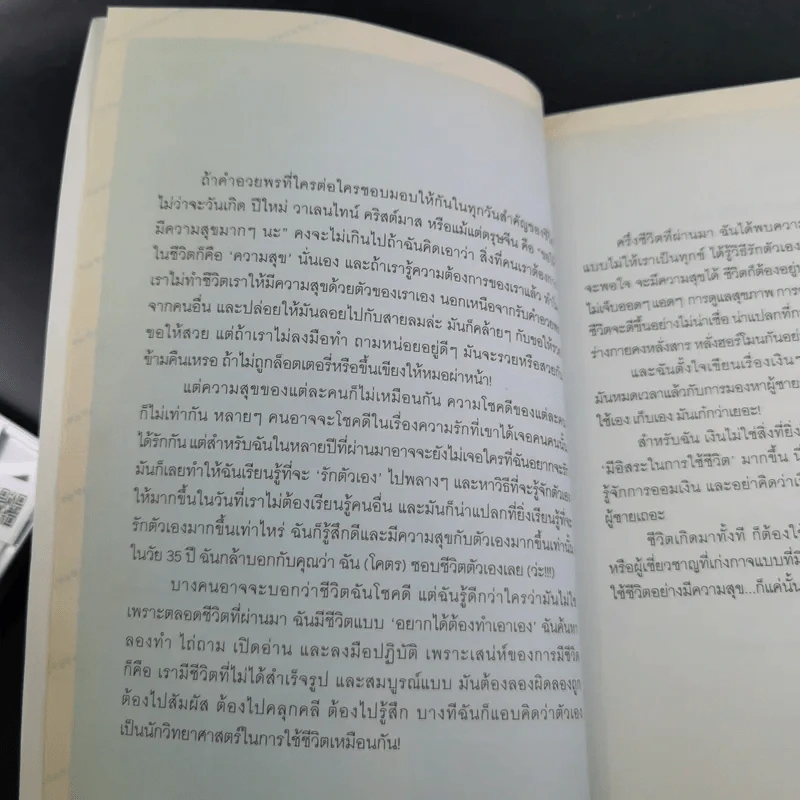 ถ้าคำอวยพรที่ใครต่อใครชอบมอบให้กันในทุกวันสำคัญของชีวิต
ไม่ว่าจะวันเกิด ปีใหม่ วาเลนไทน์ คริสต์มาส หรือแม้แต่ตรุษจีน คือ
มีความสุขมากๆ นะ" คงจะไม่เกินไปถ้าฉันคิดเอาว่า สิ่งที่คนเราต้องการ
ในชีวิตก็คือ 'ความสุข' นั่นเอง และถ้าเรารู้ความต้องการของเราแล้ว
เราไม่ทำชีวิตเราให้มีความสุขด้วยตัวของเราเอง นอกเหนือจากรับคำอวยพร
จากคนอื่น และปล่อยให้มันลอยไปกับสายลมล่ะ มันก็คล้ายๆ กับขอให้รวย
ขอให้สวย แต่ถ้าเราไม่ลงมือทำ ถามหน่อยอยู่ดีๆ มันจะรวยหรือสวยกัน
ข้ามคืนเหรอ ถ้าไม่ถูกล็อตเตอรี่หรือขึ้นเขียงให้หมอผ่าหน้า!
แต่ความสุขของแต่ละคนก็ไม่เหมือนกัน ความโชคดีของแต่ละคน
ก็ไม่เท่ากัน หลายๆ คนอาจจะโชคดีในเรื่องความรักที่เขาได้เจอคนคนนั้น
ได้รักกัน แต่สำหรับฉันในหลายปีที่ผ่านมาอาจจะยังไม่เจอใครที่ฉันอยากจะรัก
มันก็เลยทำให้ฉันเรียนรู้ที่จะ 'รักตัวเอง' ไปพลางๆ และหาวิธีที่จะรู้จักตัวเอง
ให้มากขึ้นในวันที่เราไม่ต้องเรียนรู้คนอื่น และมันก็น่าแปลกที่ยิ่งเรียนรู้ที่จะ
รักตัวเองมากขึ้นเท่าไหร่ ฉันก็รู้สึกดีและมีความสุขกับตัวเองมากขึ้นเท่านั้น
ในวัย 35 ปี ฉันกล้าบอกกับคุณว่า ฉัน (โคตร) ชอบชีวิตตัวเองเลย (ว่ะ!!!)
บางคนอาจจะบอกว่าชีวิตฉันโชคดี แต่ฉันรู้ดีกว่าใครว่ามันไม่ใช่
เพราะตลอดชีวิตที่ผ่านมา ฉันมีชีวิตแบบ 'อยากได้ต้องทำเอาเอง' ฉันค้นหา
ลองทำ ไถ่ถาม เปิดอ่าน และลงมือปฏิบัติ เพราะเสน่ห์ของการมีชีวิต
ก็คือ เรามีชีวิตที่ไม่ได้สำเร็จรูป และสมบูรณ์แบบ มันต้องลองผิดลองถูก
ต้องไปสัมผัส ต้องไปคลุกคลี ต้องไปรู้สึก บางทีฉันก็แอบคิดว่าตัวเอง
เป็นนักวิทยาศาสตร์ในการใช้ชีวิตเหมือนกัน!
ครึ่งชีวิตที่ผ่านมา ฉันได้พบความ
แบบไม่ให้เราเป็นทุกข์ ได้รู้วิธีรักตัวเอง
จะพอใจ จะมีความสุขได้ ชีวิตก็ต้องอยู่
ไม่เจ็บออดๆ แอดๆ การดูแลสุขภาพ การ
ชีวิตจะดีขึ้นอย่างไม่น่าเชื่อ น่าแปลกที่
ร่างกายคงหลั่งสาร หลั่งฮอร์โมนกันอย่า
และฉันตั้งใจเขียนเรื่องเงินๆ
มันหมดเวลาแล้วกับการมองหาผู้ชาย
ใช้เอง เก็บเอง มันเก๋กว่าเยอะ!
สำหรับฉัน เงินไม่ใช่สิ่งที่ยิ่ง
'มีอิสระในการใช้ชีวิต' มากขึ้น
รู้จักการออมเงิน และอย่าคิดว่า
ผู้ชายเถอะ
ชีวิตเกิดมาทั้งที ก็ต้องใช้
หรือผู้เชี่ยวชาญที่เก่งกาจแบบที่มี
ใช้ชีวิตอย่างมีความสุข...ก็แค่นั้น